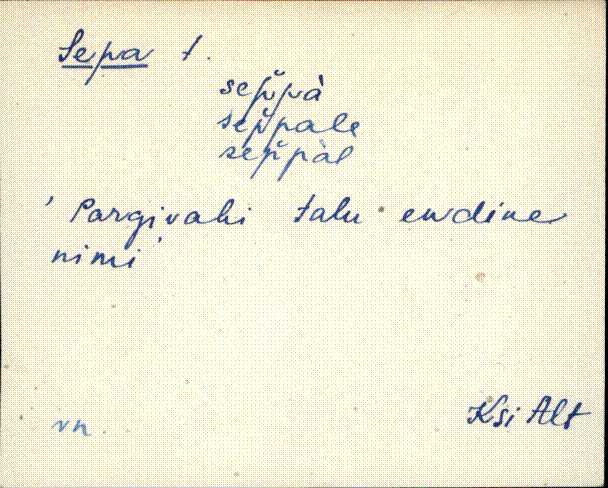 Sepa t.
sep̆pà
sep̆pale
sep̆pàl
'Pargivahi talu endine
nimi'
vn.
Ksi Alt